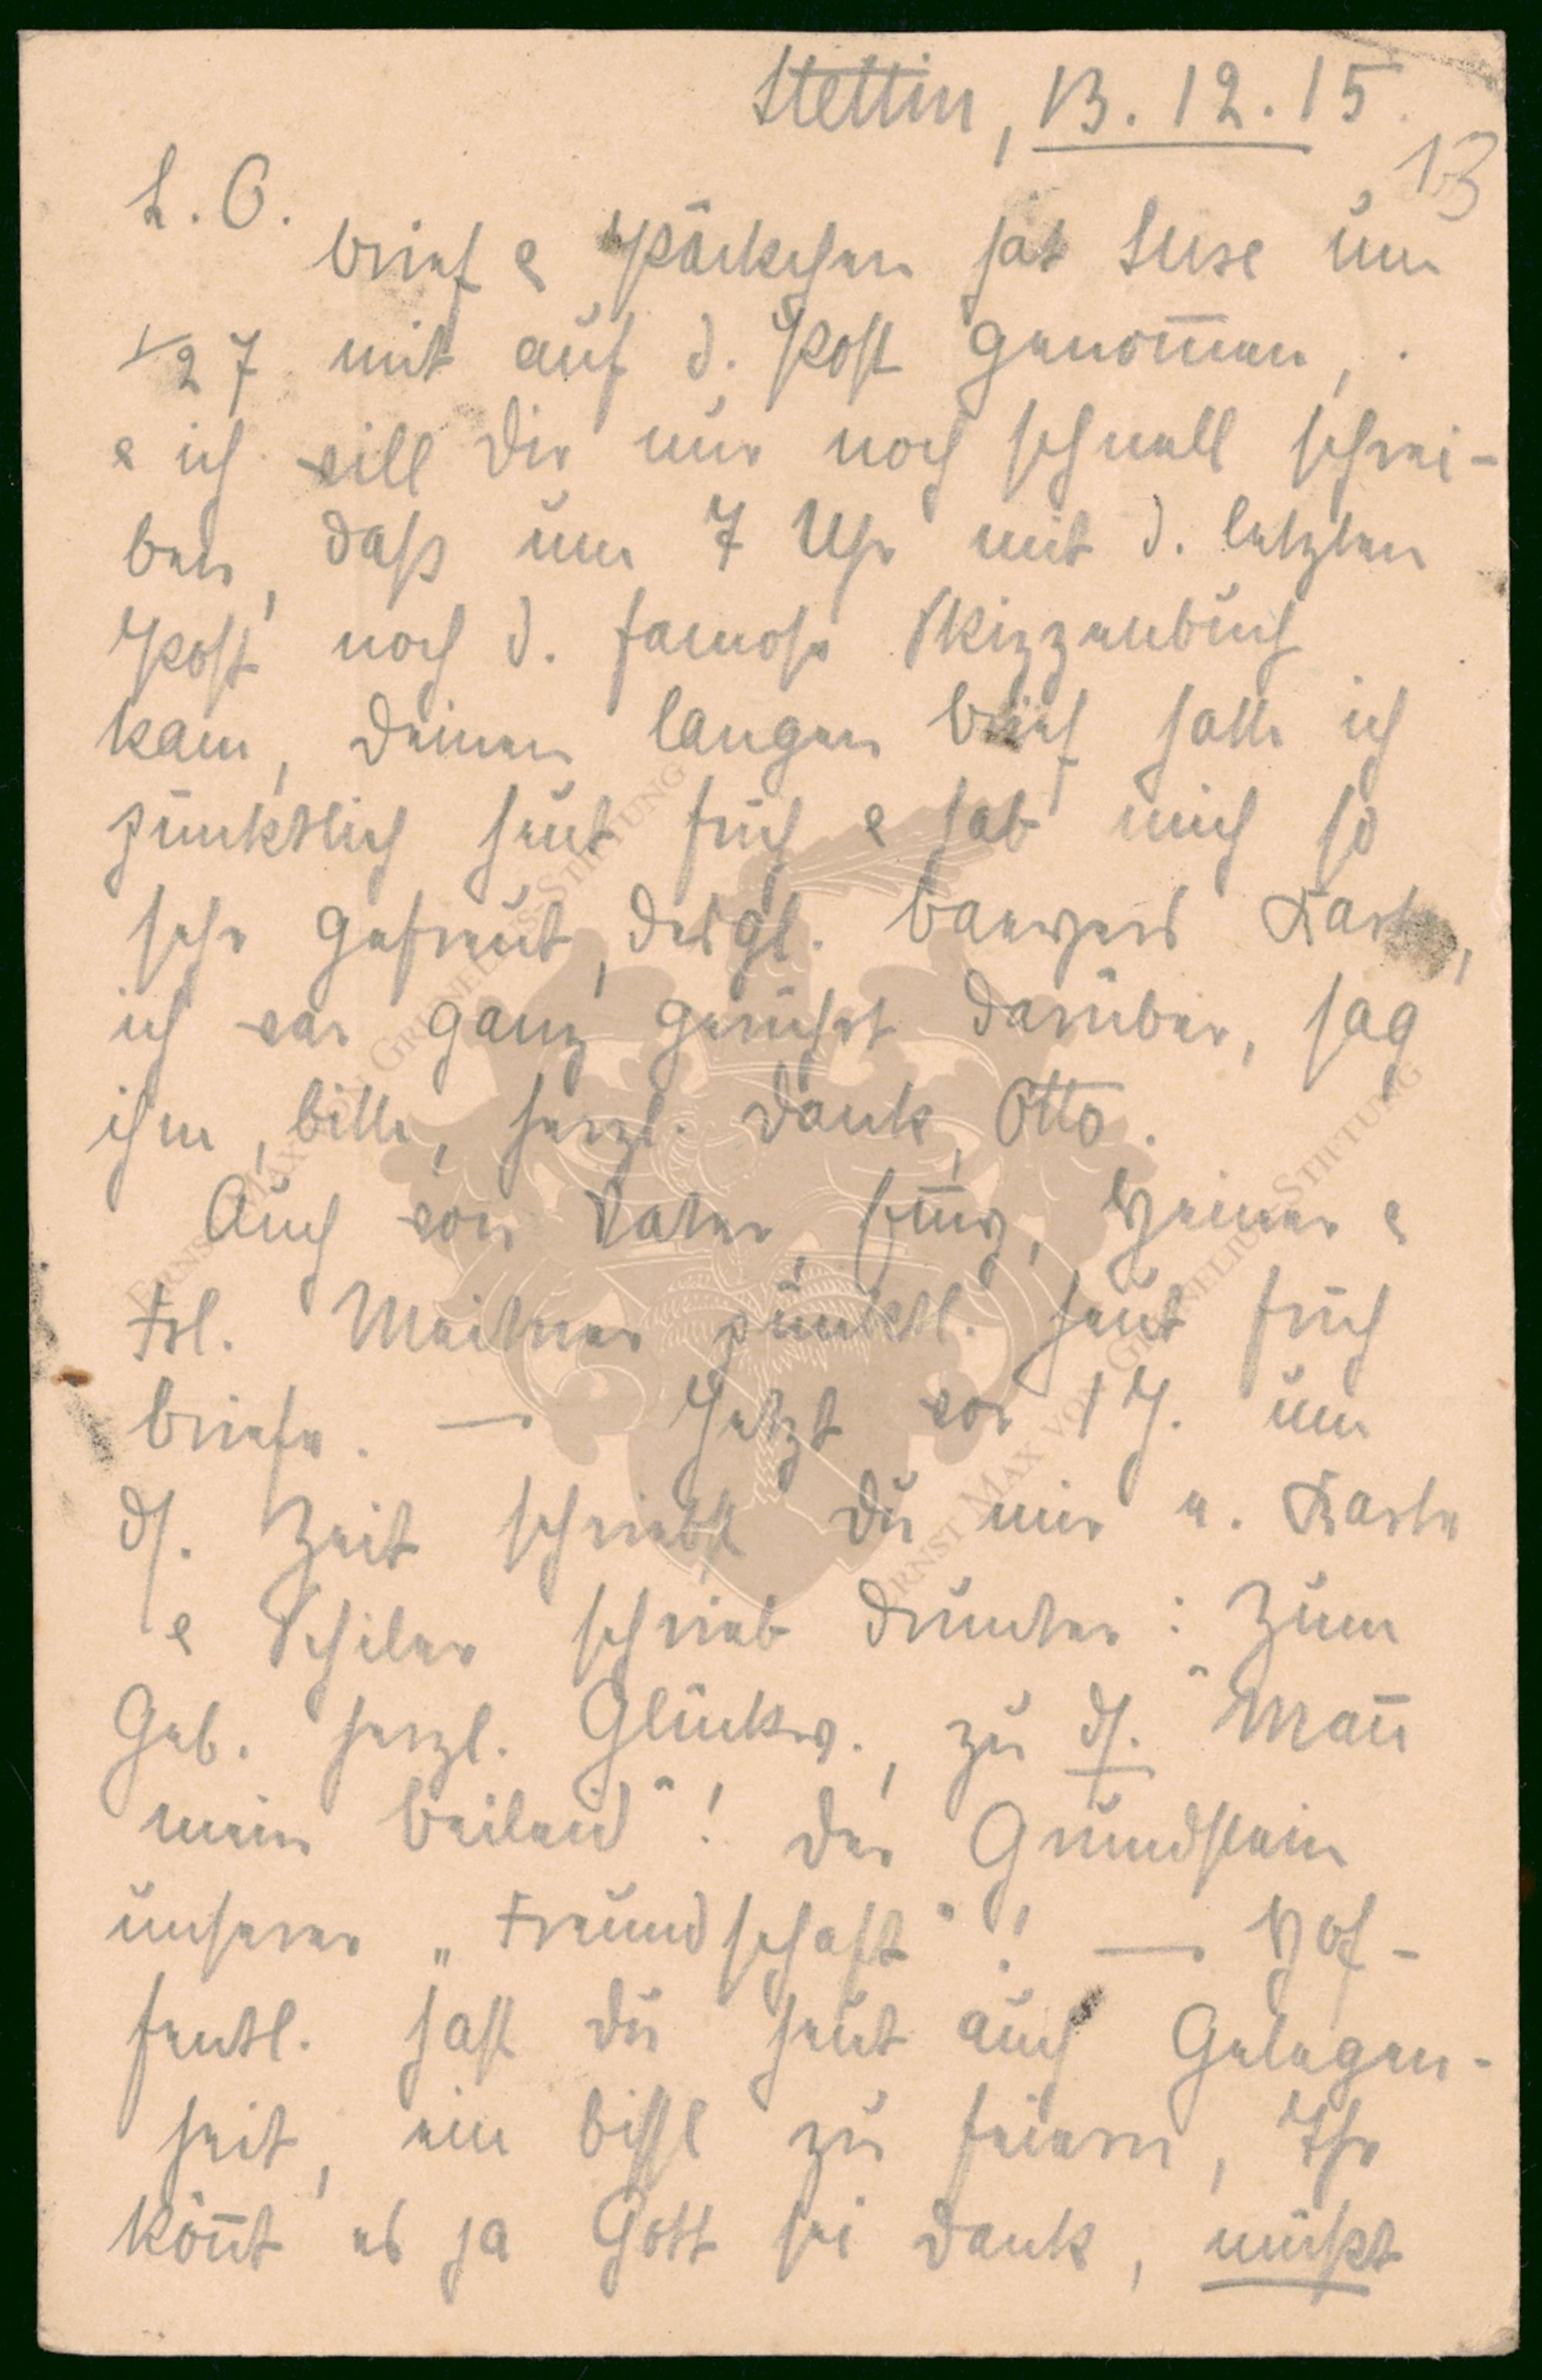 Stettin, 13.12.15.
13
L. O.
Brief & Päckchen hat Suse um
1/2 7 mit auf d. Post genom̄en,
& ich will Dir nur noch schnell schrei-
ben, daß um 7 Uhr mit d. letzten
Post noch d. famose Skizzenbuch
kam, Deinen langen Brief hatte ich
pünktlich heut früh & hab mich so
sehr gefreut, desgl. Karte,
ich war ganz gerührt darüber, sag
ihm, bitte, herzl. Dank, Otto.
Auch von Vater, Heiner &
Frl. Meitner pünktl. heut früh
Briefe. — Jetzt vor 1 J. um
ds. Zeit schriebst Du mir e. Karte
& schrieb drunter: "Zum
Geb. herzl. Glückw., zu ds. Man̄
mein Beileid"! Der Grundstein
unserer „Freundschaft"! — Hof-
fentl. hast Du heut auch Gelegen-
heit, ein bissl zu feiern, Ihr
kön̄t es ja Gott sei Dank, müßt
ERNST MAX VON GRUNELIUS-STIFTUNG
ERNST MAX VON GRUNELIUS-STIFTUNG